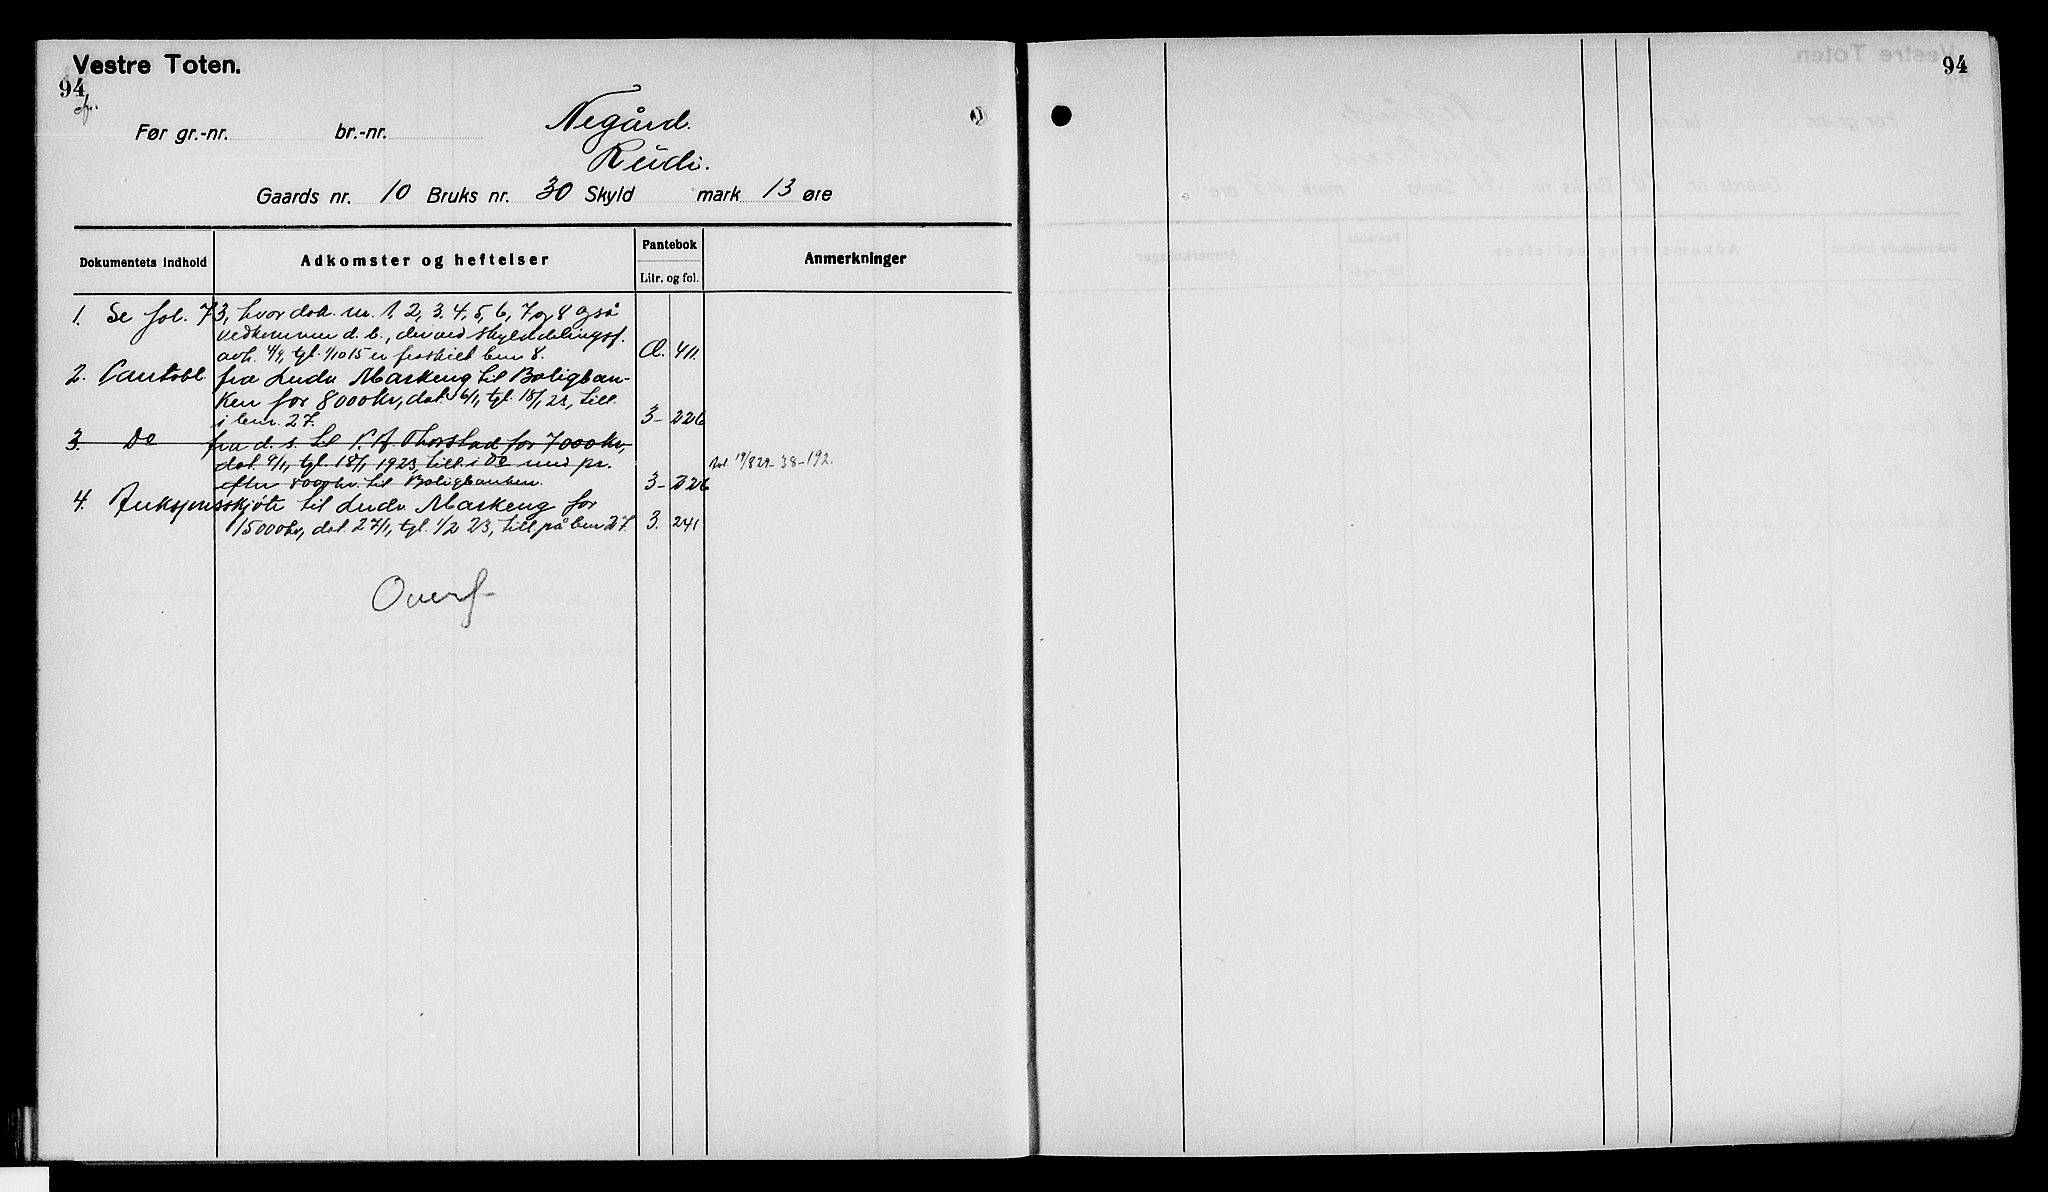 Vestre Toten.
94
Før gr.-nr. br.-nr. Negård.
Rudi.
Gaards nr. 10 Bruks nr. 30 Skyld mark 13 øre
Dokumentets indhold Adkomster og heftelser Pantebok Anmerkninger
Litr. og fol.
1. Se fol. 73, hvor dok. nr. 1, 2, 3. 4, 5, 6, 7 og 8 også
vedkommer d. b., der ved skylddelingsf.
avh. 4/9, tgl. 1/10 15 er fraskilt bnr 8. Q. 411.
2. Pantobl. fra Ludv Markeng til Boligban-
ken for 8000 kr, dat. 6/1, tgl. 18/1 23, till.
i bnr. 27. 3- 226
3. Do fra d. s. til P. A. Thorstad for 7000 kr,
dat. 9/1, tgl. 18/1 1923, till. i Do med pr.
efter 8000 kr. til Boligbanken. 3- 226 Avl. 19/8 29 - 38 - 192.
4. Auksjonsskjöte til Ludv Markeng for
15000 kr, dat. 27/1, tgl. 1/2 23, till på bnr 27. 3. 241
Overf-
94